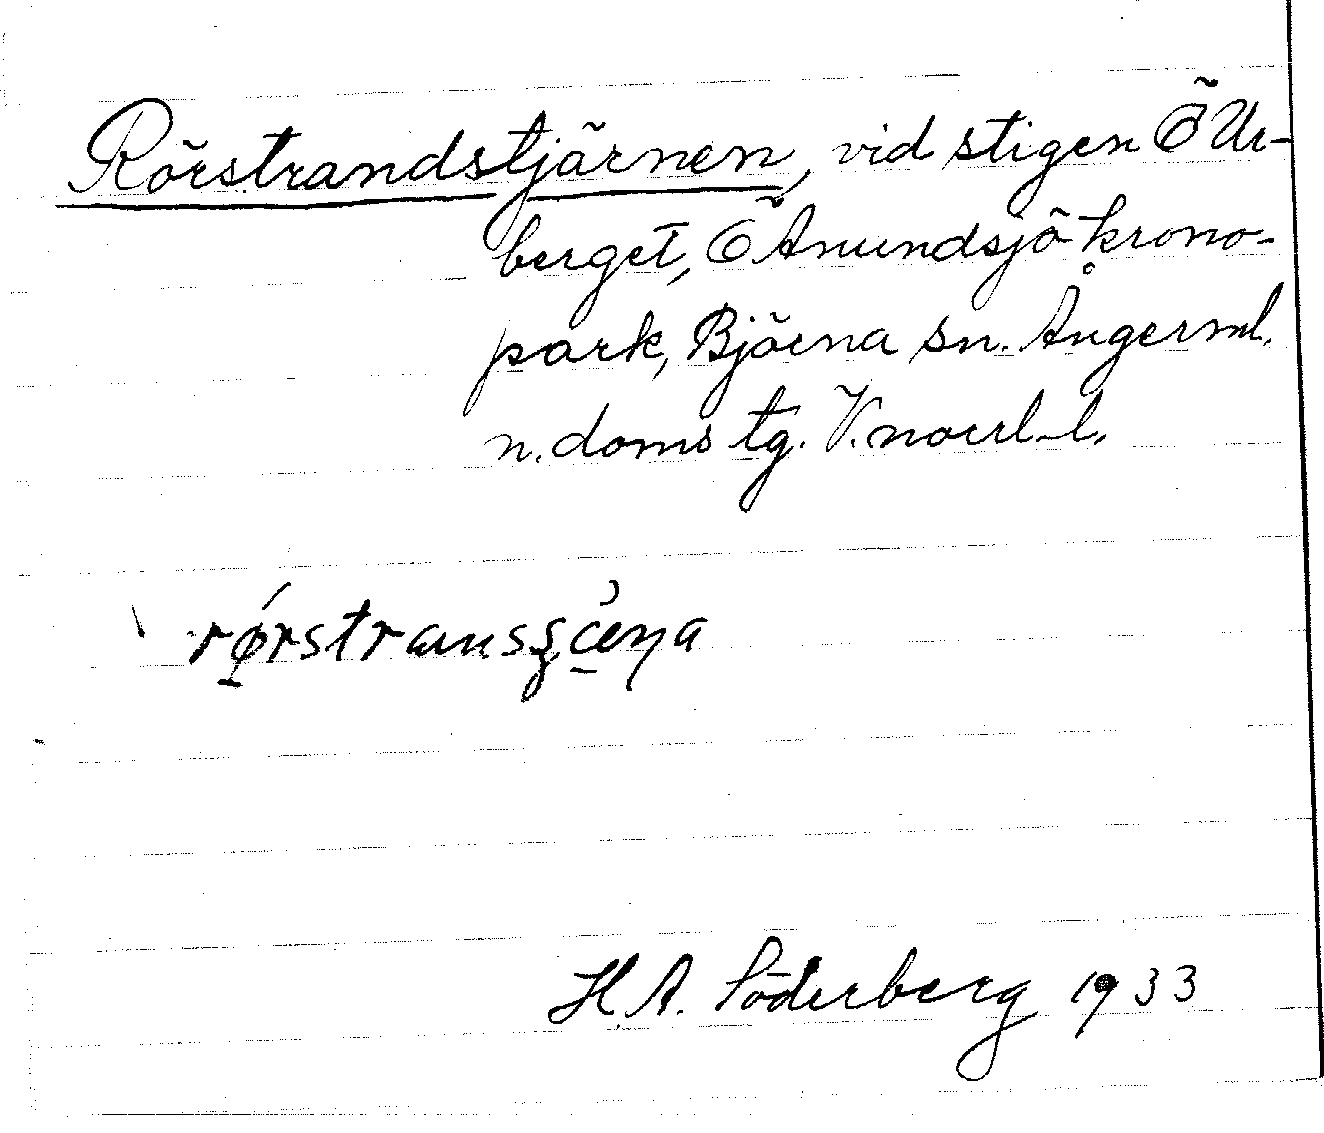 Rörstrandstjärnen, vid stigen Ö Ur-
berget, Ö Anundsjö krono-
park, Björna sn. Ångerml.
n. doms tg. V.norrl.l.
rørstrans
H.A. Söderberg 1933